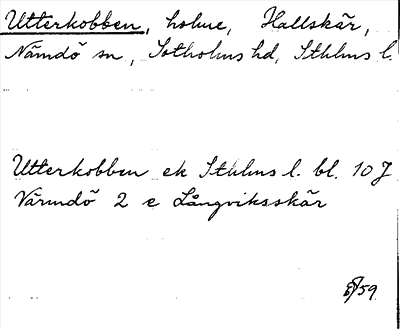 Utterkobben, holme, Hallskär,
Nämdö sn, Sotholms hd, Sthlms l.
Utterkobben ek Sthlms l. bl. 10 J
Värmdö 2 e Långviksskär
59